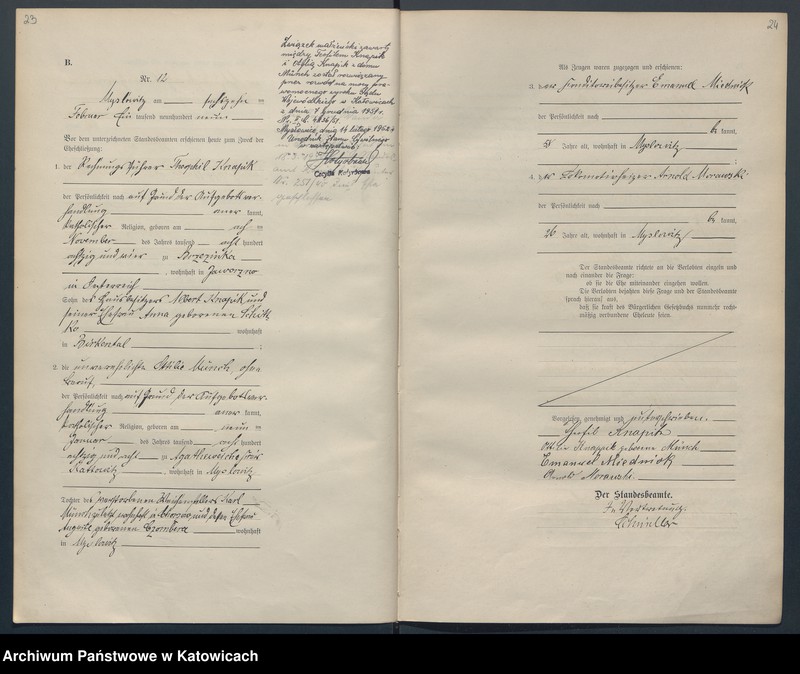 23
B.
Nr. 12
Myslowitz am sechszehn ten
Februar Ein tausend neunhundert neun
Vor dem unterzeichneten Standesbeamten erschienen heute zum Zweck der
Eheschließung:
1. der Rechnungsführer Theophil Knapik
der Persönlichkeit nach auf Grund der Aufgebotsver-
handlung aner kannt,
katholischer Religion, geboren am
November des Jahres tausend acht hundert
achtzig und vier zu Brzezinka
, wohnhaft in Jaworzno
in Österreich
Sohn des Hausbesitzers Robert Knapik und
seiner Ehefrau Anna geborenen
wohnhaft
in Birkental
2. die unverehelichte Ottilie Münch, ohne
Beruf,
der Persönlichkeit nach auf Grund der Aufgebotsver-
handlung aner kannt,
katholischer Religion, geboren am neun ten
Januar des Jahres tausend acht hundert
achtzig und acht zu Agathenhütte Kreis
Kattowitz , wohnhaft in Myslowitz
Tochter des verstorbenen Karl
Münch, zuletzt wohnhaft in Chorzow, und dessen Ehefrau
Auguste geborenen wohnhaft
in Myslowitz
Związek małżeński zawarty
między Teofilem Knapik
i Otylią Knapik z domu
Münch został rozwiązany
przez rozwód na mocy pra-
womocnego wyroku Sądu
Wojewódzkiego w Katowicach
z dnia 7 grudnia 1951 r.
Mysłowice, dnia 14 lutego 1962 r.
Urzędnik Stanu Cywilnego
24
Als Zeugen waren zugezogen und erschienen:
3. der Konditoreibesitzer Emanuel Miednick
der Persönlichkeit nach
be kannt,
58 Jahre alt, wohnhaft in Myslowitz
4. der Lokomotivheizer Arnold Morawski
der Persönlichkeit nach
be kannt,
26 Jahre alt, wohnhaft in Myslowitz
Der Standesbeamte richtete an die Verlobten einzeln und
nach einander die Frage:
ob sie die Ehe miteinander eingehen wollen.
Die Verlobten bejahten diese Frage und der Standesbeamte
sprach hierauf aus,
daß sie kraft des Bürgerlichen Gesetzbuchs nunmehr recht-
mäßig verbundene Eheleute seien.
Vorgelesen, genehmigt und unterschrieben.
Teofil Knapik
Otilie Knappik geborene Münch
Emanuel Miednick
Arnold Morawski
Der Standesbeamte.
In Vertretung:
Archiwum Państwowe w Katowicach